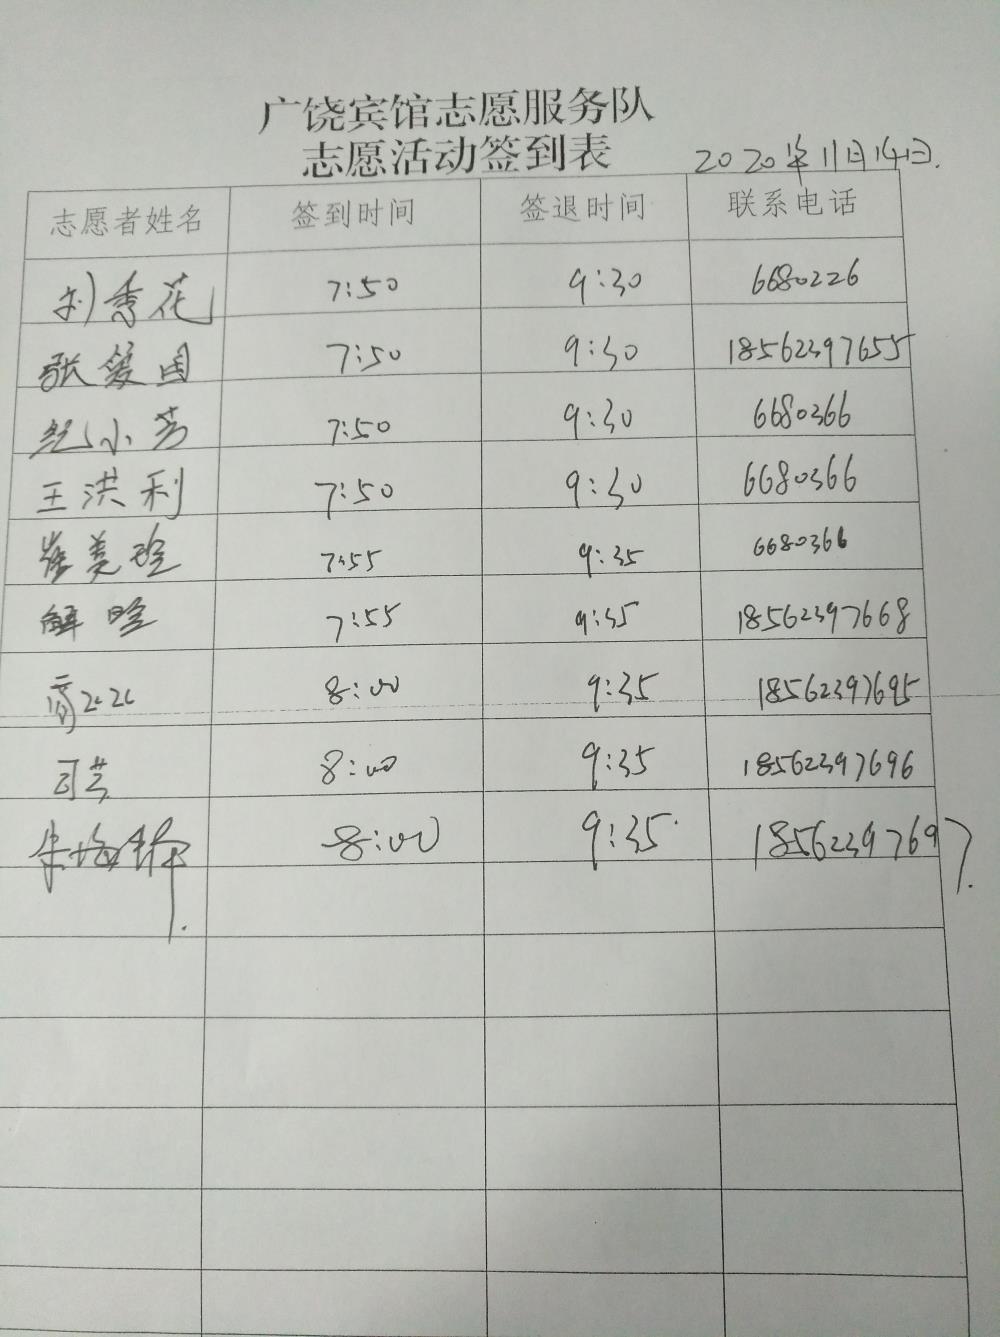 广饶宾馆志愿服务队
志愿活动签到表 2020年11月14日.
志愿者姓名 签到时间 签退时间 联系电话
刘秀花 7:50 9:30 6680226
张爱国 7:50 9:30 18562397655
纪小芳 7:50 9:30 6680366
王洪利 7:50 9:30 6680366
崔美玲 7:55 9:35 6680366
解晗 7:55 9:35 18562397668
8:00 9:35 18562397695
司芸 8:00 9:35 18562397696
朱海静 8:00 9:35 18562397697